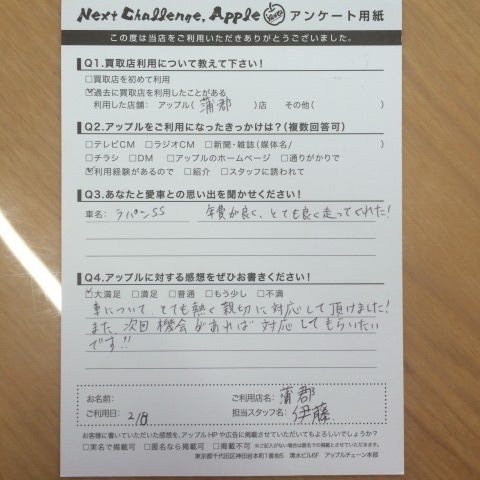 Next Challenge, Apple アンケート用紙
この度は当店をご利用いただきありがとうございました。
Q1.買取店利用について教えて下さい!
□買取店を初めて利用
☑過去に買取店を利用したことがある
利用した店舗: アップル(蒲郡)店 その他( )
Q2.アップルをご利用になったきっかけは?(複数回答可)
□テレビCM □ラジオCM □新聞・雑誌(媒体名/ )
□チラシ □DM □アップルのホームページ □通りがかりで
☑利用経験があるので □紹介 □スタッフに誘われて
Q3.あなたと愛車との思い出を聞かせください!
車名: ラパンSS 年費が良く、とても良く走ってくれた!
Q4.アップルに対する感想をぜひお書きください!
☑大満足 □満足 □普通 □もう少し □不満
車について、とても熱く親切に対応して頂けました!
また、次回機会があれば対応してもらいたい
です!!
お名前: ご利用店名: 蒲郡
ご利用日: 2/8 担当スタッフ名: 伊藤
お客様に書いていただいた感想を、アップルHPや広告に掲載させていただいてもよろしいでしょうか?
□実名で掲載可 □匿名なら掲載可 □掲載不可 ※ご記入がない場合は匿名での掲載とさせていただきます。
東京都千代田区神田岩本町1番地5 清水ビル6F アップルチェーン本部